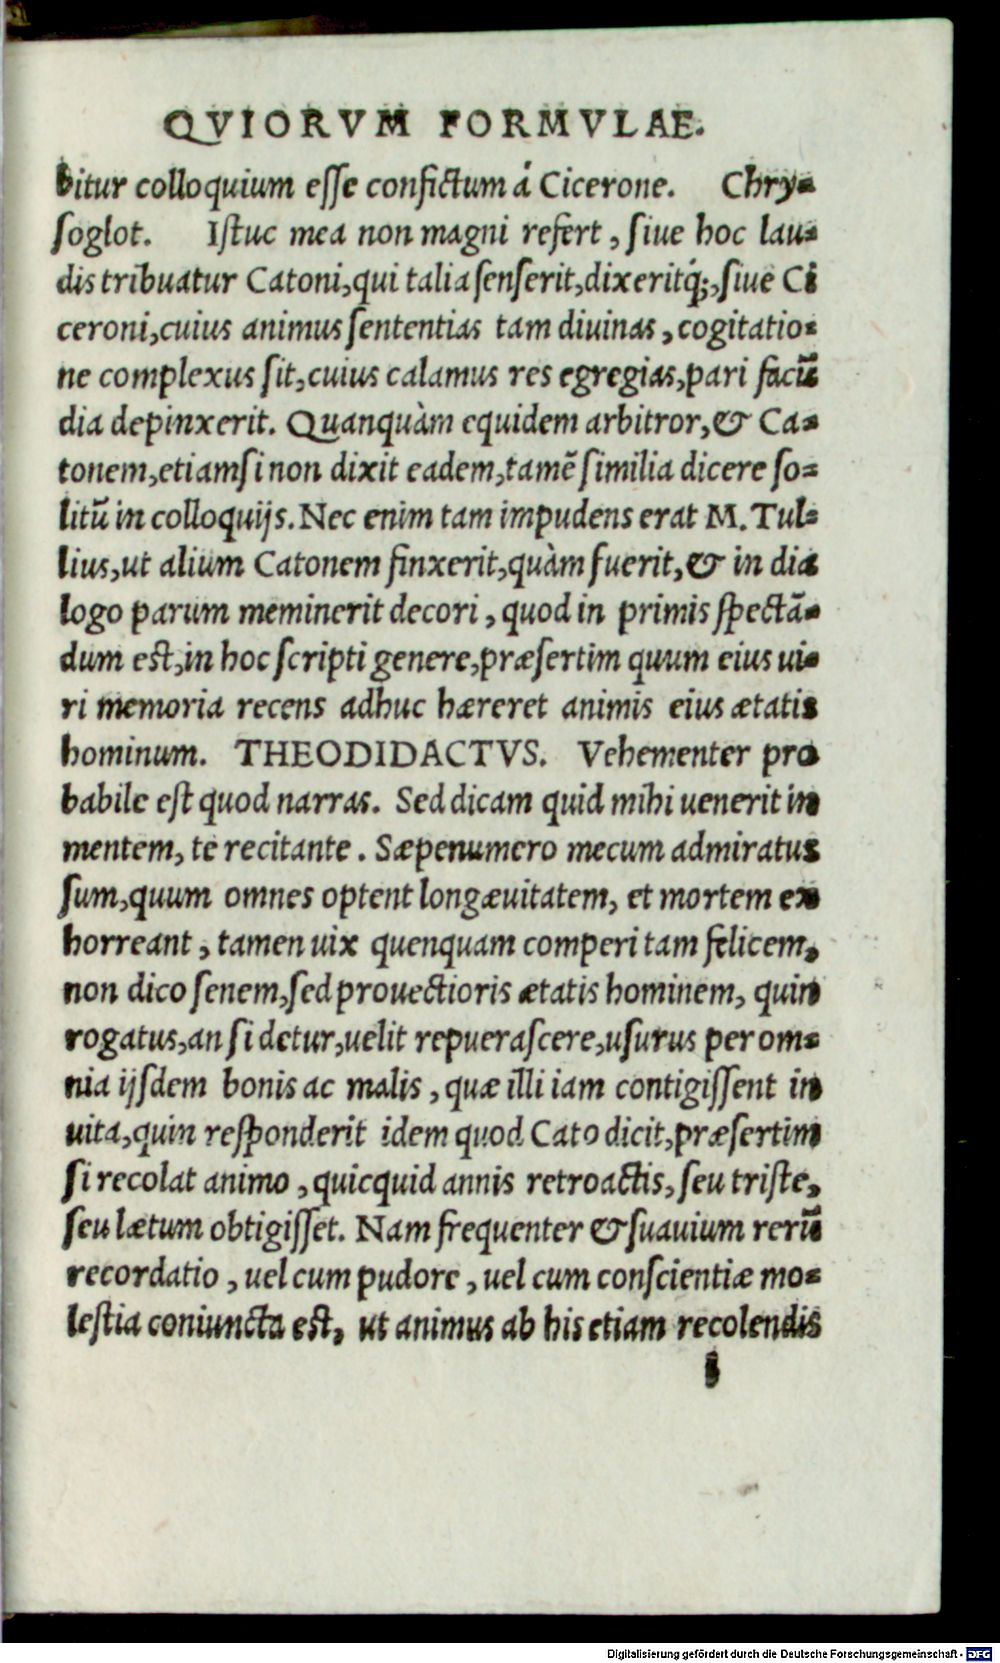 QVIORVM FORMVLAE.
bitur colloquium esse confictum á Cicerone. Chry-
soglot. Istuc mea non magni refert, siue hoc lau-
dis tribuatur Catoni, qui talia senserit, dixeritq́;, siue Ci
ceroni, cuius animus sententias tam diuinas, cogitatio-
ne complexus sit, cuius calamus res egregias, pari facũ
dia depinxerit. Quanquàm equidem arbitror, & Ca-
tonem, etiamsi non dixit eadem, tamẽ similia dicere so-
litũ in colloquijs. Nec enim tam impudens erat M. Tul-
lius, ut alium Catonem finxerit, quàm fuerit, & in dia
logo parum meminerit decori, quod in primis spectã-
dum est, in hoc scripti genere, præsertim quum eius ui-
ri memoria recens adhuc hæreret animis eius ætatis
hominum. THEODIDACTVS. Vehementer pro
babile est quod narras. Sed dicam quid mihi uenerit in
mentem, te recitante. Sæpenumero mecum admiratus
sum, quum omnes optent longæuitatem, et mortem ex
horreant, tamen uix quenquam comperi tam felicem,
non dico senem, sed prouectioris ætatis hominem, quin
rogatus, an si detur, uelit repuerascere, usurus per om-
nia ijsdem bonis ac malis, quæ illi iam contigissent in
uita, quin responderit idem quod Cato dicit, præsertim
si recolat animo, quicquid annis retroactis, seu triste,
seu lætum obtigisset. Nam frequenter & suauium rerũ
recordatio, uel cum pudore, uel cum conscientiæ mo-
lestia coniuncta est, ut animus ab his etiam recolendis
Digitalisierung gefördert durch die Deutsche Forschungsgemeinschaft - DFG